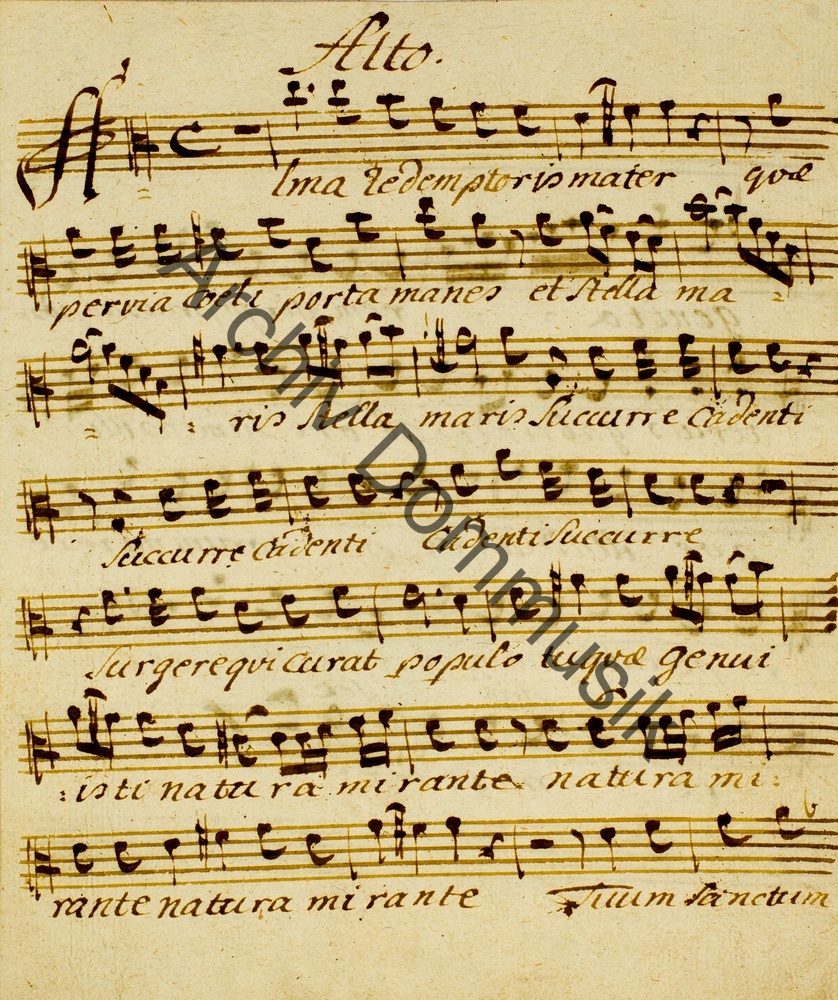 Alto.
Alma Redemptoris mater quæ
pervia Coeli porta manes et Stella ma =
= = ris Stella maris Succurre Cadenti
Succurre Cadenti Cadenti Succurre
Surgere qui Curat populo tu quæ genui
: isti natura mirante natura mi :
rante natura mirante Tuum Sanctum
Archiv Dommusik